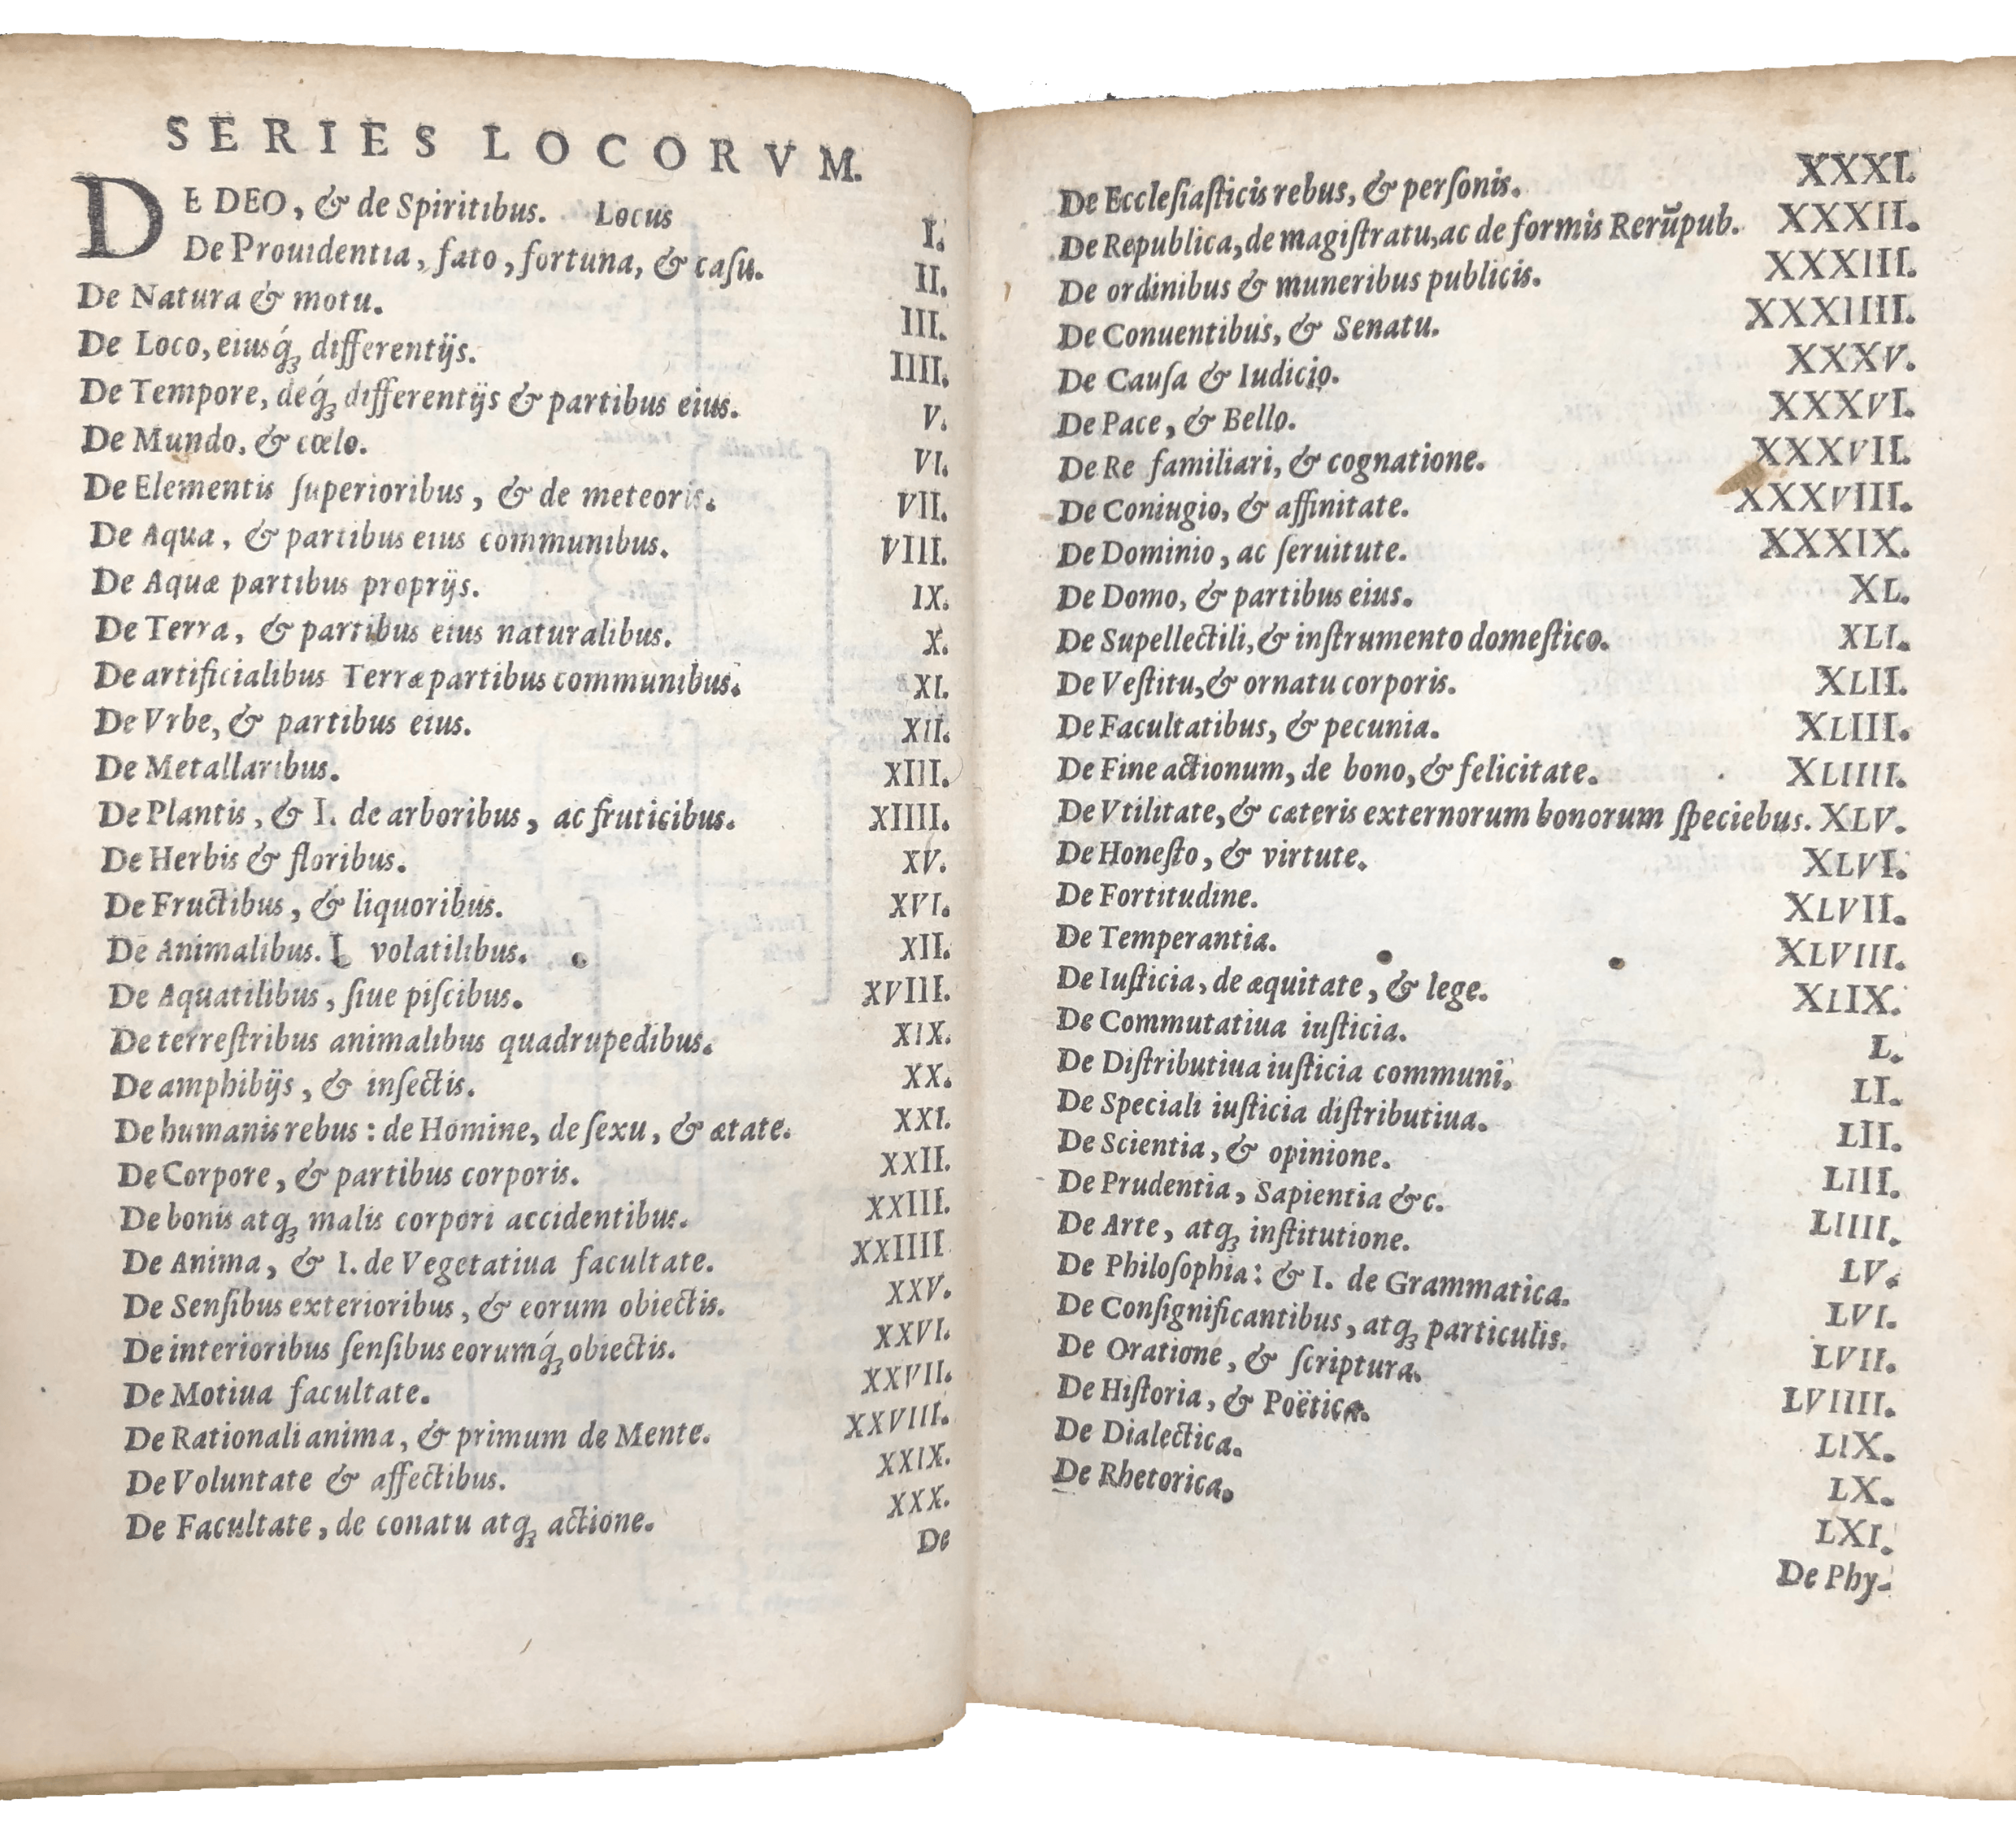 SERIES LOCORVM.
DE DEO, & de Spiritibus. Locus I.
De Prouidentia, fato, fortuna, & caſu. II.
De Natura & motu. III.
De Loco, eiusq́ꝫ differentijs. IIII.
De Tempore, deq́ꝫ differentijs & partibus eius. V.
De Mundo, & cœlo. VI.
De Elementis ſuperioribus, & de meteoris. VII.
De Aqua, & partibus eius communibus. VIII.
De Aquæ partibus proprijs. IX.
De Terra, & partibus eius naturalibus. X.
De artificialibus Terræ partibus communibus. XI.
De Vrbe, & partibus eius. XII.
De Metallaribus. XIII.
De Plantis, & I. de arboribus, ac fruticibus. XIIII.
De Herbis & floribus. XV.
De Fructibus, & liquoribus. XVI.
De Animalibus. I. volatilibus. XII.
De Aquatilibus, ſiue piſcibus. XVIII.
De terreſtribus animalibus quadrupedibus. XIX.
De amphibijs, & inſectis. XX.
De humanis rebus: de Homine, de ſexu, & ætate. XXI.
De Corpore, & partibus corporis. XXII.
De bonis atqꝫ malis corpori accidentibus. XXIII.
De Anima, & I. de Vegetatiua facultate. XXIIII
De Senſibus exterioribus, & eorum obiectis. XXV.
De interioribus ſenſibus eorumq́ꝫ obiectis. XXVI.
De Motiua facultate. XXVII.
De Rationali anima, & primum de Mente. XXVIII.
De Voluntate & affectibus. XXIX.
De Facultate, de conatu atqꝫ actione. XXX.
De
De Eccleſiaſticis rebus, & perſonis. XXXI.
De Republica, de magiſtratu, ac de formis Rerūpub. XXXII.
De ordinibus & muneribus publicis. XXXIII.
De Conuentibus, & Senatu. XXXIIII.
De Cauſa & Iudicio. XXXV.
De Pace, & Bello. XXXVI.
De Re familiari, & cognatione. XXXVII.
De Coniugio, & affinitate. XXXVIII.
De Dominio, ac ſeruitute. XXXIX.
De Domo, & partibus eius. XL.
De Supellectili, & inſtrumento domeſtico. XLI.
De Veſtitu, & ornatu corporis. XLII.
De Facultatibus, & pecunia. XLIII.
De Fine actionum, de bono, & felicitate. XLIIII.
De Vtilitate, & cæteris externorum bonorum ſpeciebus. XLV.
De Honeſto, & virtute. XLVI.
De Fortitudine. XLVII.
De Temperantia. XLVIII.
De Iuſticia, de æquitate, & lege. XLIX.
De Commutatiua iuſticia. L.
De Diſtributiua iuſticia communi. LI.
De Speciali iuſticia diſtributiua. LII.
De Scientia, & opinione. LIII.
De Prudentia, Sapientia &c. LIIII.
De Arte, atqꝫ inſtitutione. LV.
De Philoſophia: & I. de Grammatica. LVI.
De Conſignificantibus, atqꝫ particulis. LVII.
De Oratione, & ſcriptura. LVIIII.
De Hiſtoria, & Poëtica. LIX.
De Dialectica. LX.
De Rhetorica. LXI.
De Phy-